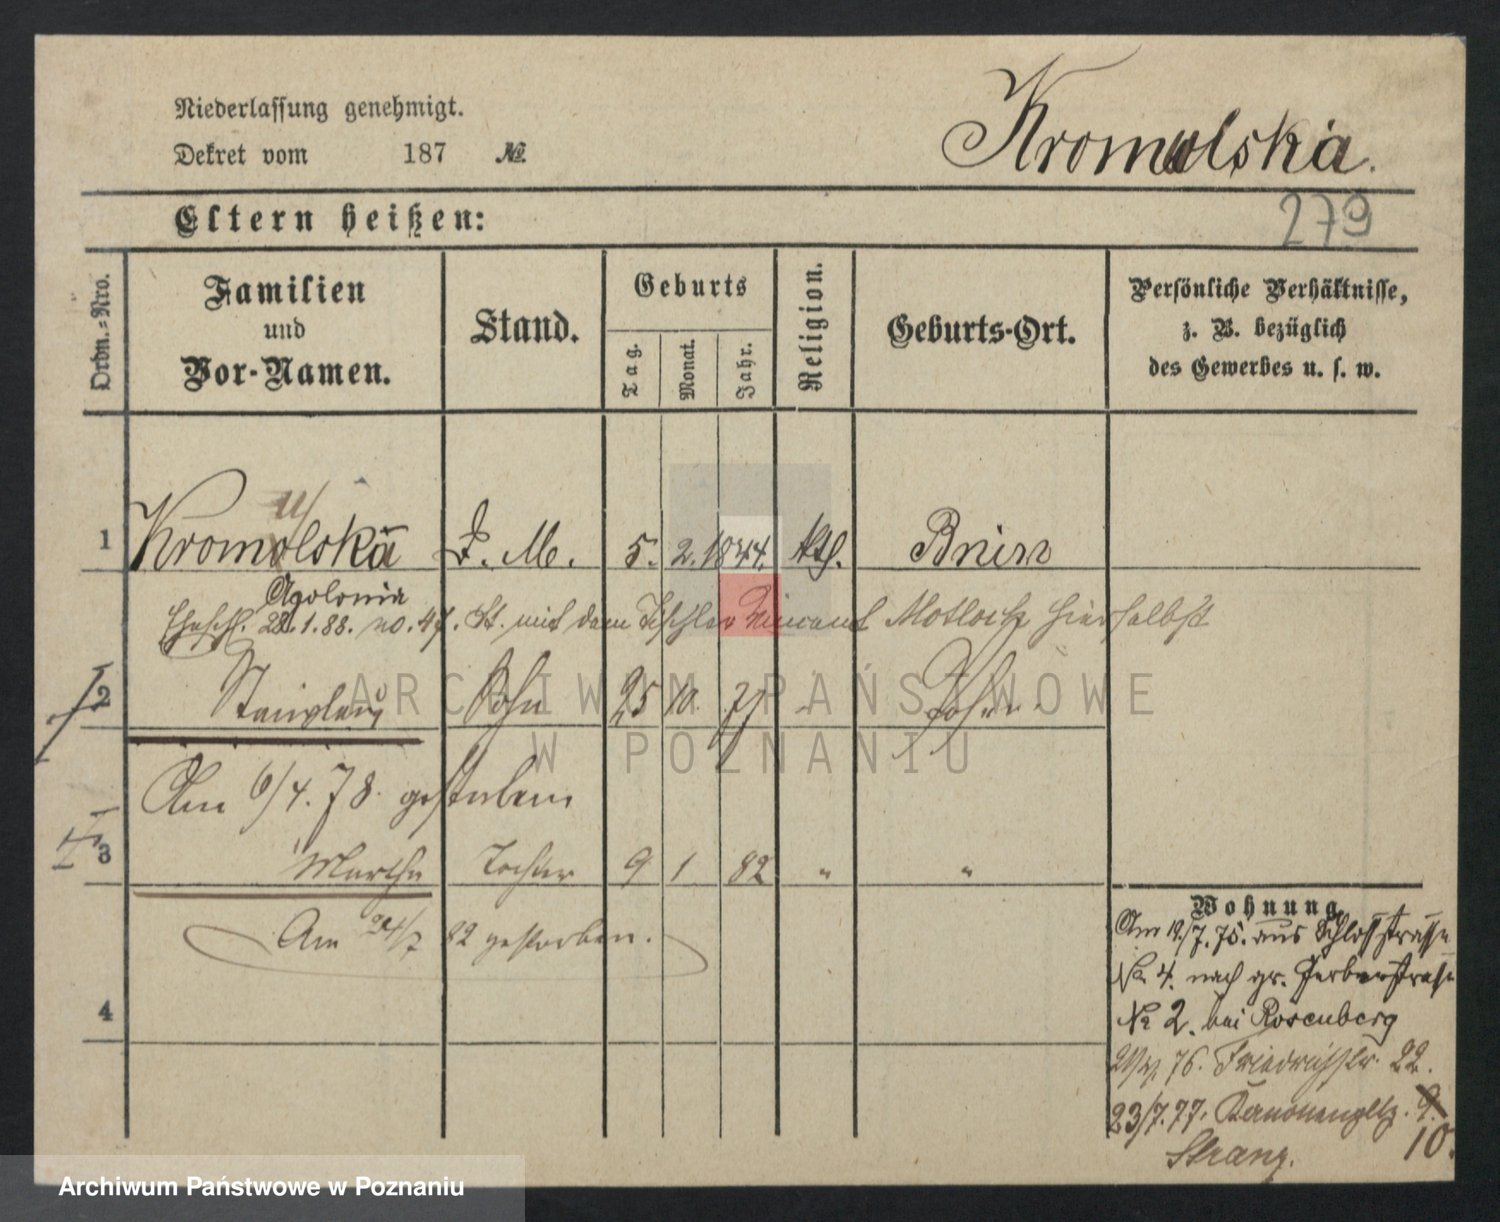 Niederlassung genehmigt.
Dekret vom 187 №
Kromolska.
Eltern heißen:
279
Ordn.-Nro.
Familien und Vor-Namen.
Stand.
Geburts
Tag.
Monat.
Jahr.
Religion.
Geburts-Ort.
Persönliche Verhältnisse,
z. B. bezüglich
des Gewerbes u. s. w.
1 Kromolska D. M. 5. 2. 1844. kth. Bnin
Apolonia
Ehesch. 28.1.88. no. 47. St. mit dem Tischler Vincent Motloch hierselbst
2 Stanislaus Sohn 25 10. 77 Posen
Am 6/4. 78. gestorben
3 Martha Tochter 9 1 82 " "
Am 24/7 82 gestorben.
4
Wohnung
Am 12/7. 75. aus Schlossstrasse
No. 4. nach gr. Gerberstrasse
No 2. bei Rosenberg
76. Friedrichstr. 22.
23/7. 77. Kanonenpltz. 9.
10.
Stranz.
ARCHIWUM PAŃSTWOWE
W POZNANIU
Archiwum Państwowe w Poznaniu